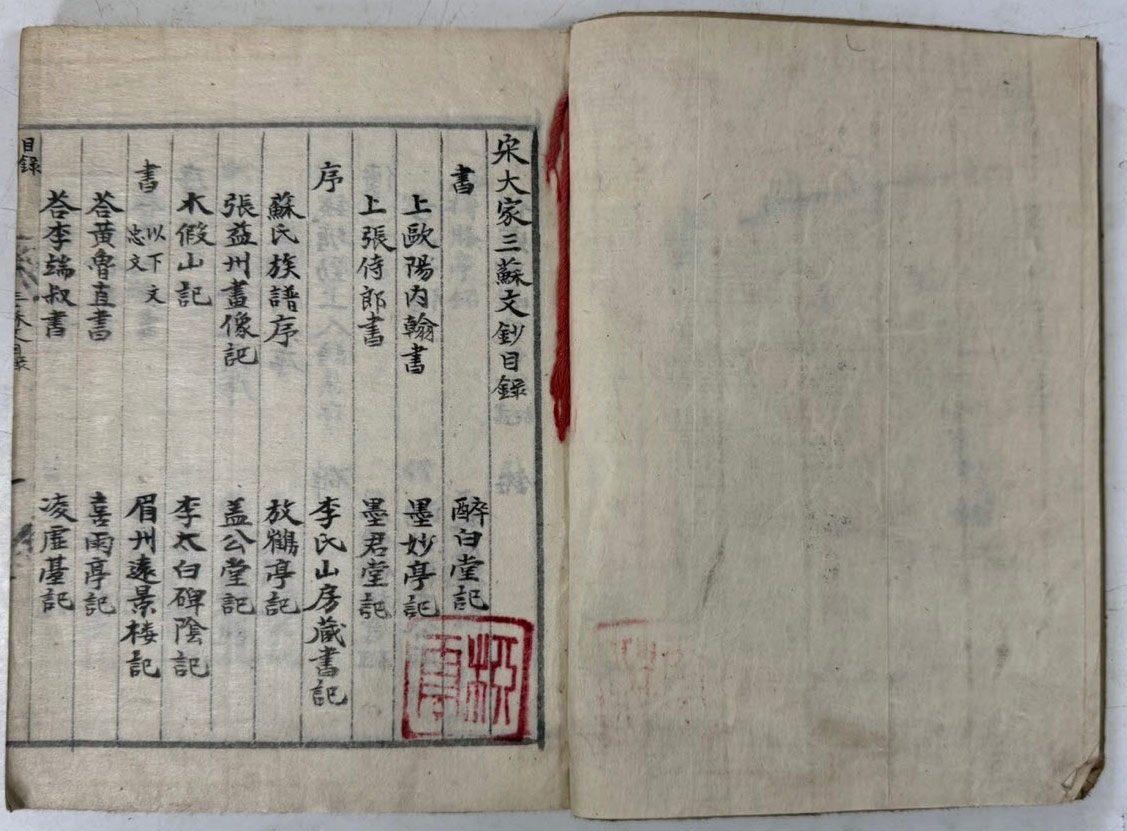 宋大家三蘇文鈔目録
書
醉白堂記
上歐陽内翰書
墨妙亭記
上張侍郎書
墨君堂記
序
李氏山房蔵書記
蘇氏族譜序
放鶴亭記
張益州畫像記
盖公堂記
木假山記
李太白碑陰記
書 以下文忠文
眉州遠景楼記
荅黄魯直書
喜雨亭記
荅李端叔書
凌虚臺記
目録